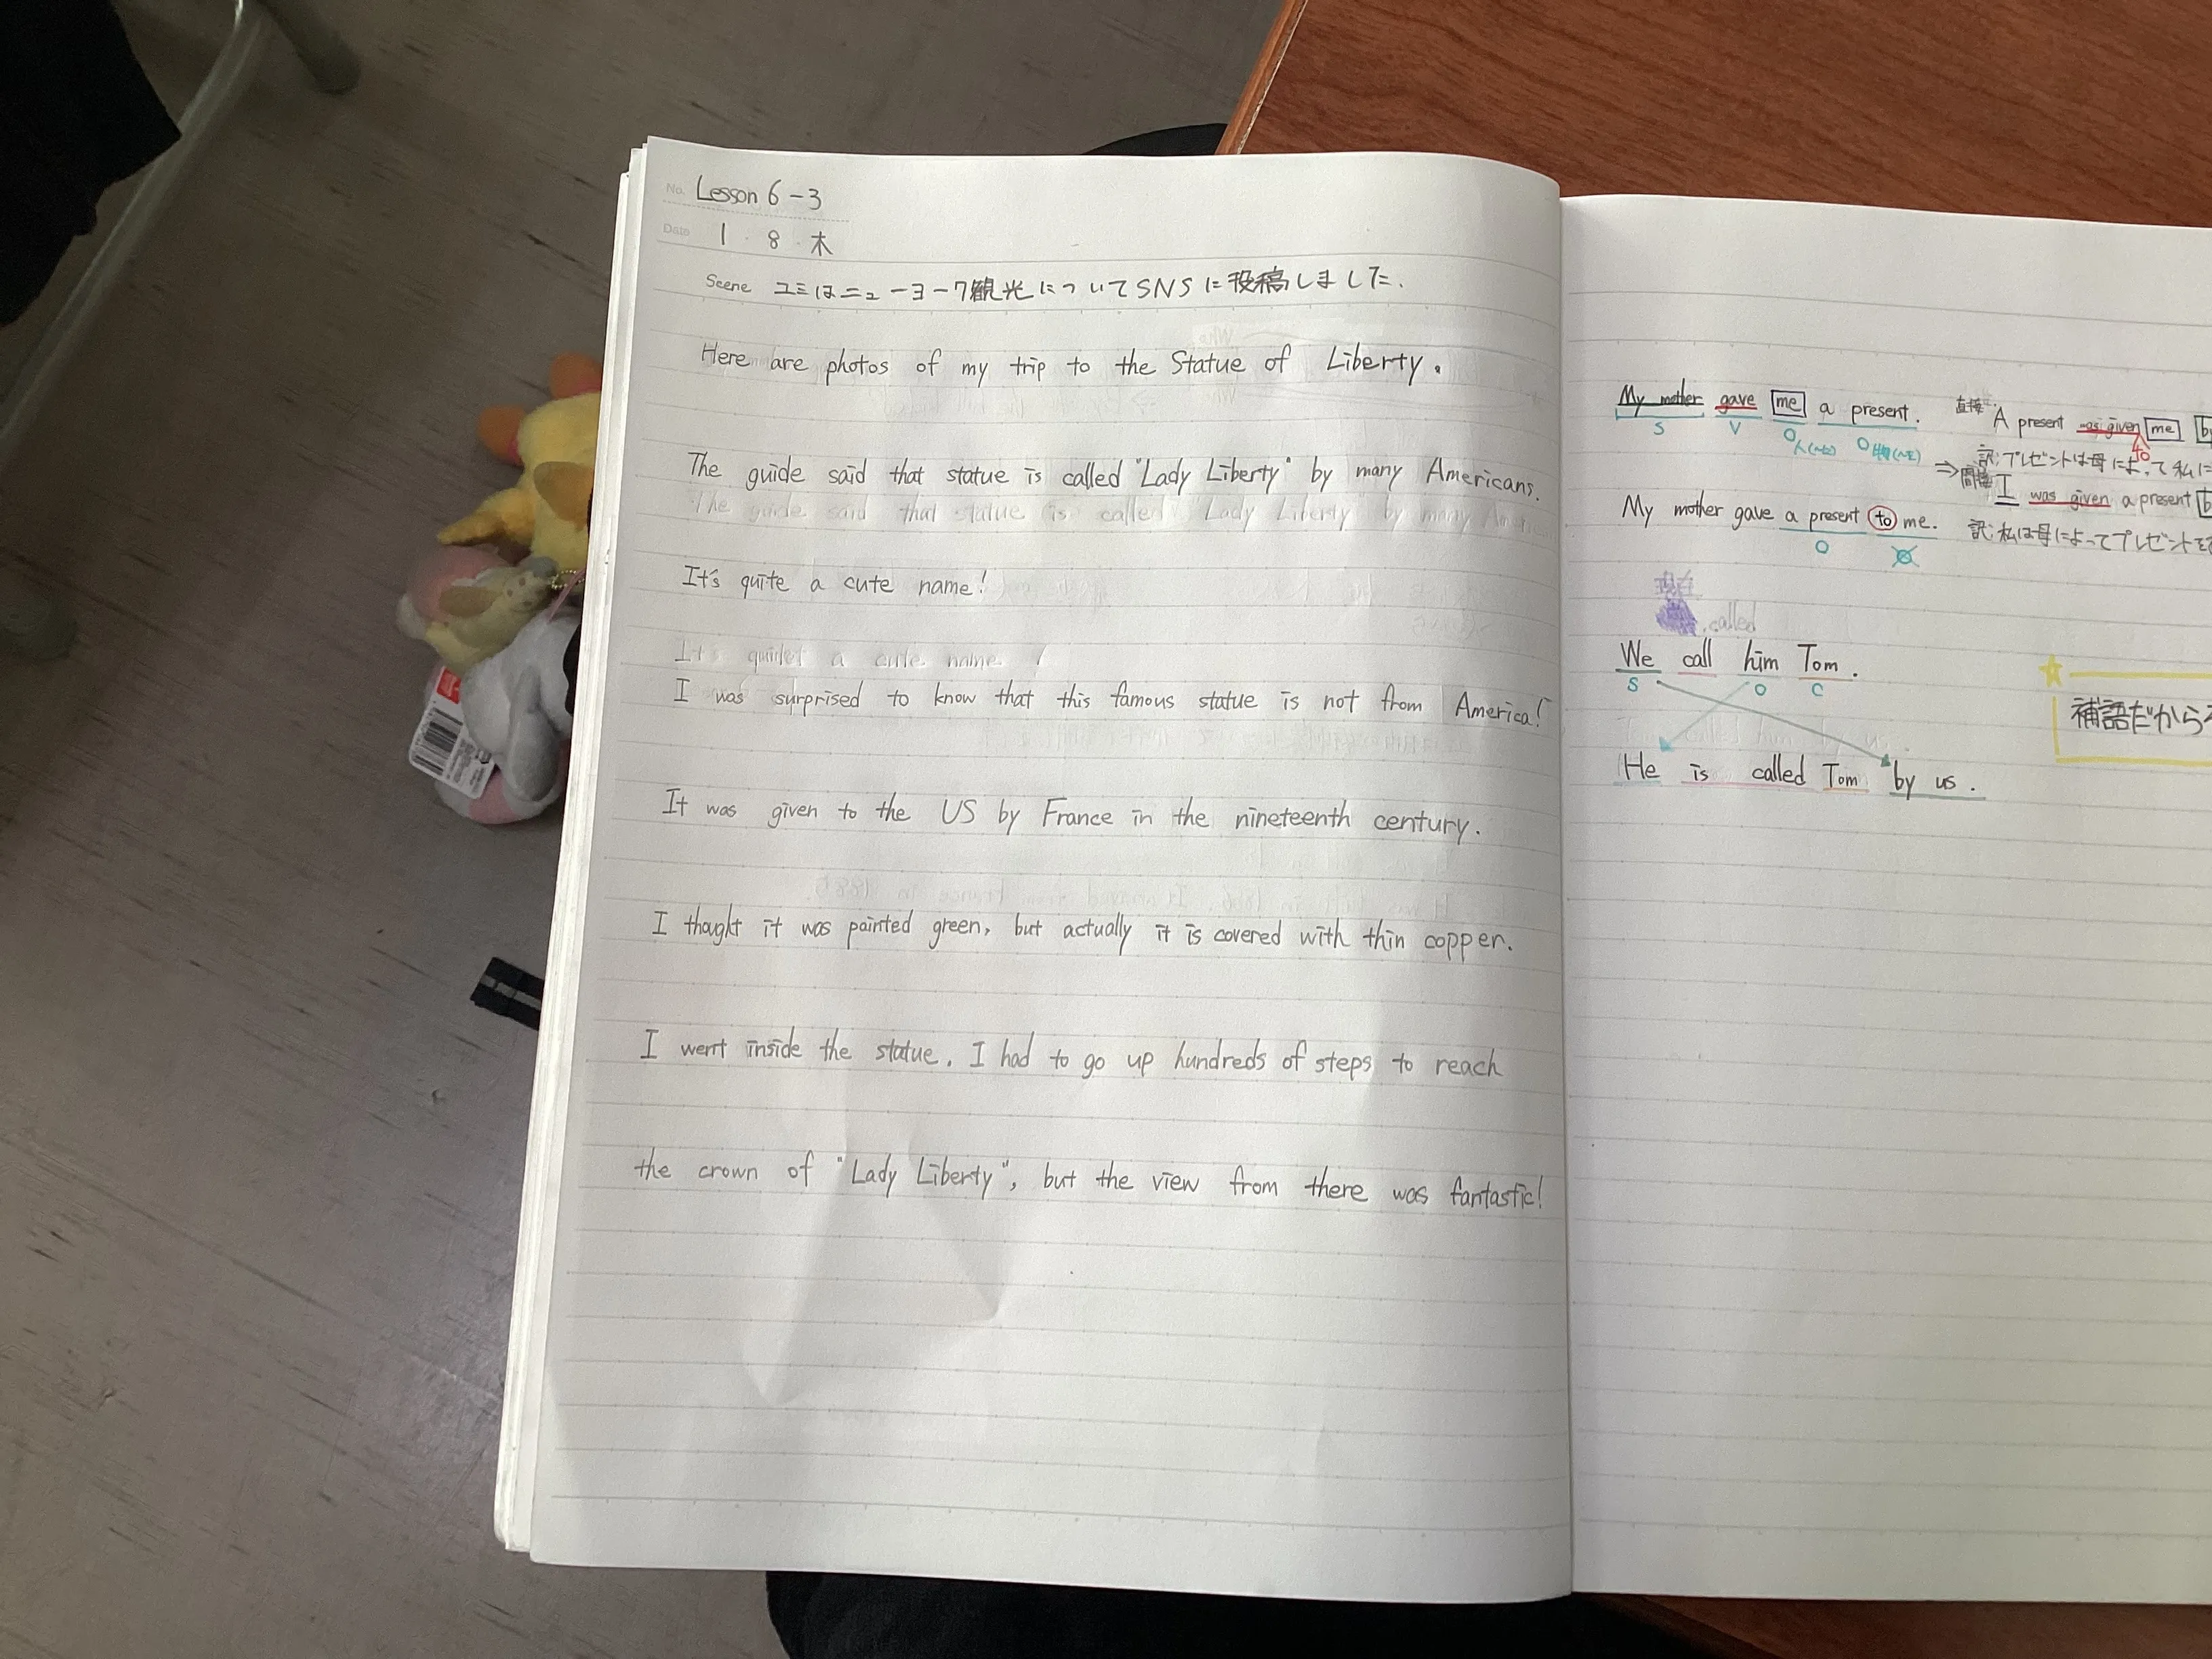 No. Lesson 6-3
Date 1 . 8 . 木
Scene ユミはニューヨーク観光についてSNSに投稿しました.
Here are photos of my trip to the Statue of Liberty.
The guide said that statue is called "Lady Liberty" by many Americans.
The guide said that statue is called "Lady Liberty" by many
It's quite a cute name!
It's a cute name !
I was surprised to know that this famous statue is not from America!
It was given to the US by France in the nineteenth century.
I thought it was painted green, but actually it is covered with thin copper.
I went inside the statue. I had to go up hundreds of steps to reach
the crown of "Lady Liberty", but the view from there was fantastic!
My mother gave me a present.
S V O人(〜に) O物(〜を)
My mother gave a present to me.
O
直接 A present was given to me
訳:プレゼントは母によって私に
⇒ 間接 I was given a present
訳:私は母によってプレゼントを
called
We call him Tom.
S O C
He is called Tom by us.
補語だから